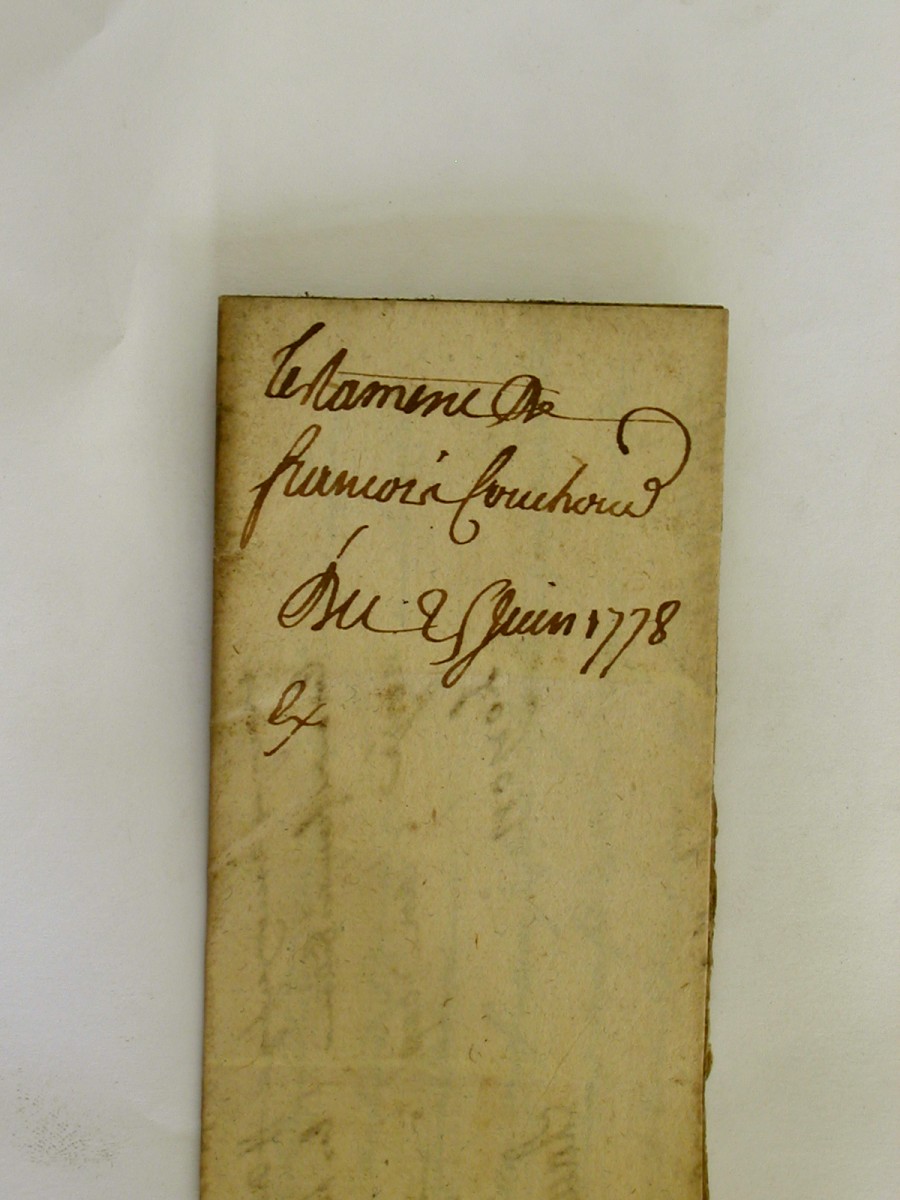 testament de
francois Couchoud
Du 25 Juin 1778
ex